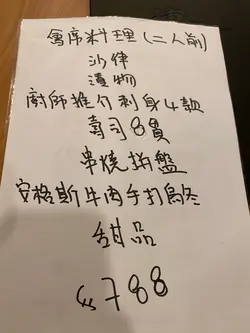 會席料理(二人前)
沙律
漬物
廚師推介刺身4款
壽司8貫
串燒拼盤
安格斯牛肉手打烏冬
甜品
$788